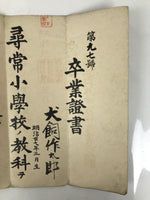 第九七號
卒業證書
犬飼作太郎
明治廿九年三月生
尋常小學校ノ教科ヲ